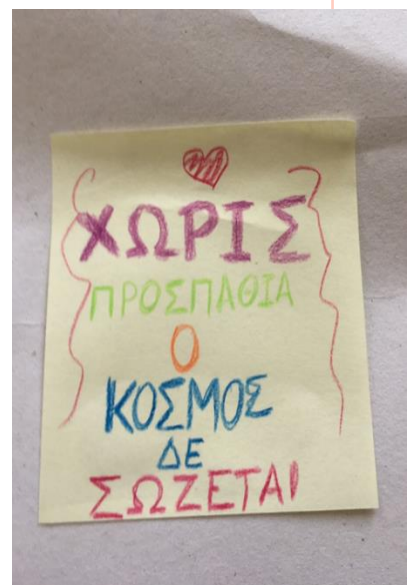 ΧΩΡΙΣ
ΠΡΟΣΠΑΘΙΑ
Ο
ΚΟΣΜΟΣ
ΔΕ
ΣΩΖΕΤΑΙ